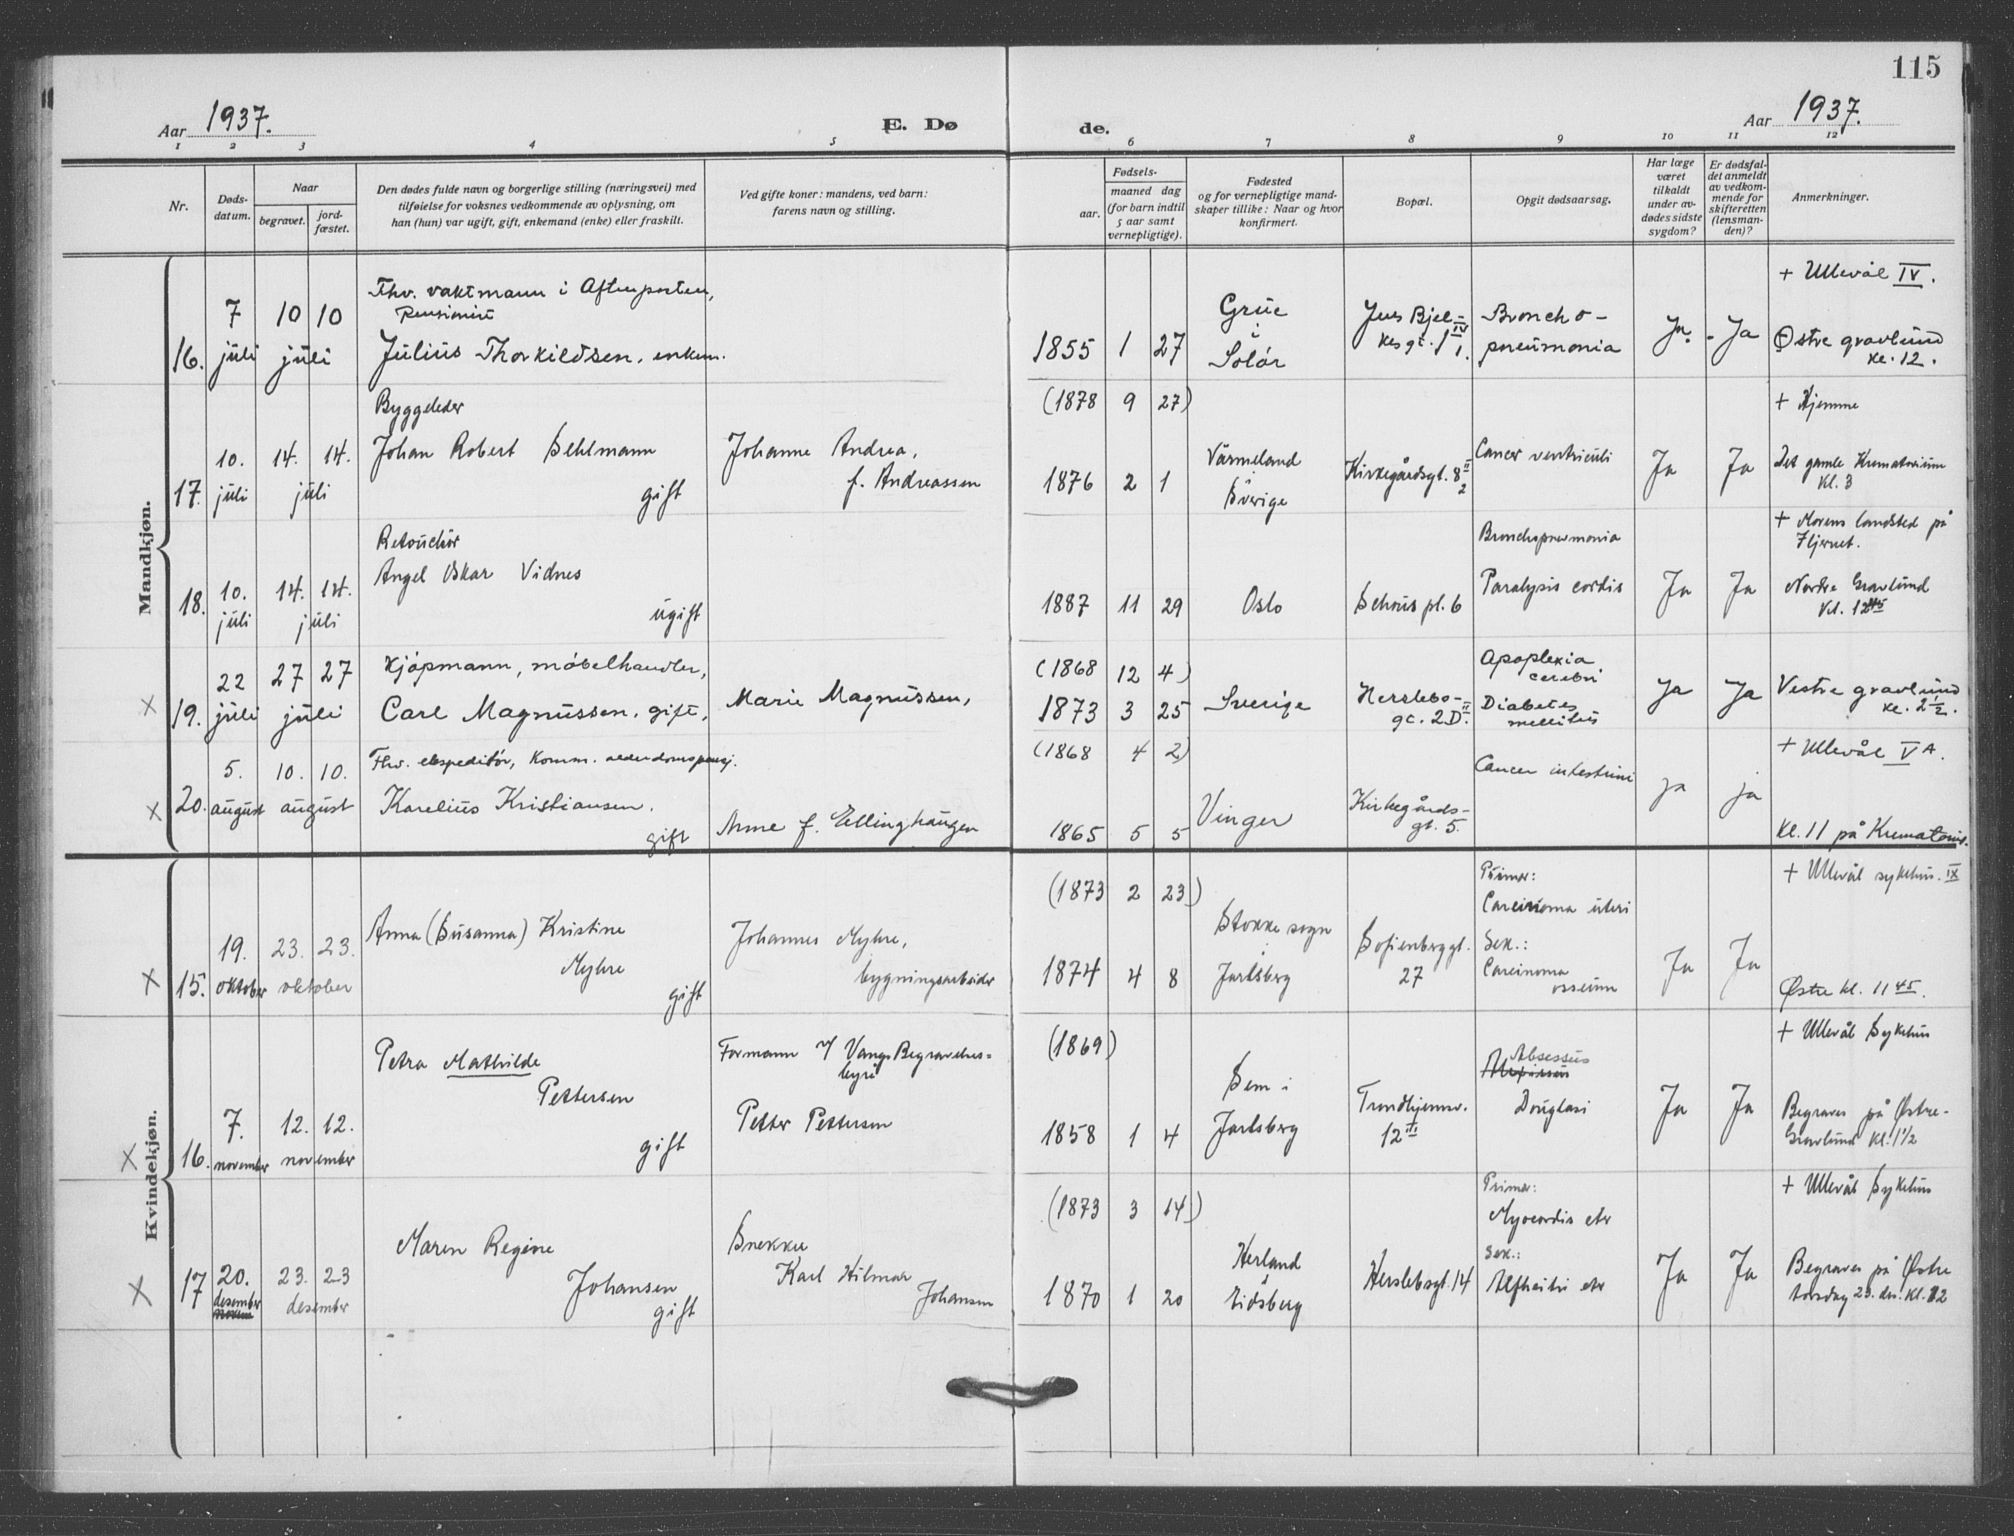 115
Aar 1937.
E. Dø
de.
Aar 1937.
1 2 3 4 5 6 7 8 9 10 11 12
Nr.
Døds-
datum.
Naar
begravet.
jord-
fæstet.
Den dødes fulde navn og borgerlige stilling (næringsvei) med
tilføielse for voksnes vedkommende av oplysning, om
han (hun) var ugift, gift, enkemand (enke) eller fraskilt.
Ved gifte koner: mandens, ved barn:
farens navn og stilling.
Fødsels-
aar.
maaned dag
(for barn indtil
5 aar samt
vernepligtige).
Fødested
og for vernepligtige mand-
skaper tillike: Naar og hvor
konfirmert.
Bopæl.
Opgit dødsaarsag.
Har læge
været
tilkaldt
under av-
dødes sidste
sygdom?
Er dødsfal-
det anmeldt
av vedkom-
mende for
skifteretten
(lensman-
den)?
Anmerkninger.
Mandkjøn.
16.
7
juli
10 10
juli
Fhv. vaktmann i Aftenposten,
Pensionist
Julius Thorkildsen, enkem.
1855 1 27
Grue
i
Solør
Jens Bjel-
kes gt. 1 IV
1.
Broncho-
pneumonia
Ja.
Ja
+ Ullevål IV.
Østre gravlund
kl. 12.
17.
10.
juli
14. 14.
juli
Byggeleder
Johan Robert Sehlmann
gift
Johanne Andrea,
f. Andreassen
(1878 9 27)
1876 2 1
Värmeland
i
Sverige
Kirkegårdsgt. 8 II
2
Cancer ventriculi
Ja
Ja
+ Hjemme
Det gamle Krematorium
kl. 3
18.
10.
juli
14. 14.
juli
Retouchør
Angel Oskar Vidnes
ugift
1887 11 29
Oslo
Schous pl. 6
Bronchopneumonia
Paralysis cordis
Ja
Ja
+ Morens landsted på
Nordre Gravlund
kl. 12 45
x
19.
22
juli
27 27
juli
Kjøpmann, møbelhandler,
Carl Magnussen, gift,
Marie Magnussen,
(1868 12 4)
1873 3 25
Sverige
Herslebs-
gt. 2 D. II
Apoplexia
cerebri
Diabetes
mellitus
Ja
Ja
Vestre gravlund
kl. 2 1/2.
x
20.
5.
august
10. 10.
august
Fhv. ekspeditør, Komm. alderdomspensj.
Karelius Kristiansen.
gift
Anne f. Ellinghaugen
(1868 4 2)
1865 5 5
Vinger
Kirkegårds-
gt. 5.
Cancer intestini
ja
ja
+ Ullevål V A.
Kl. 11 på Krematoriet.
Kvindekjøn.
x
15.
19.
oktober
23. 23.
oktober
Anna (Susanna) Kristine
Myhre
gift
Johannes Myhre,
bygningsarbeider
(1873 2 23)
1874 4 8
Stokke sogn
i
Jarlsberg
Sofienberggt.
27
Primær:
Carcinoma uteri
Sek.:
Carcinoma
osseum
Ja
Ja
+ Ullevål sykehus. IX
Østre kl. 11 45.
x
16.
7.
november
12. 12.
november
Petra Mathilde
Pettersen
gift
Formann v/ Vangs Begravelses=
byrå
Petter Pettersen
(1869)
1858 1 4
Sem i
Jarlsberg
Trondhjemsv.
12 III
Absessus
Douglasi
Ja
Ja
+ Ullevål Sykehus
Begraves på Østre-
Gravlund kl. 1 1/2
x
17
20.
desember
23. 23
desember
Maren Regine
Johansen
gift
Snekker
Karl Hilmar
Johansen
(1873 3 14)
1870 1 20
Herland
i
Eidsberg
Herslebsgt. 14
Primær:
Myocordis etr
Sek.:
Ja
Ja
+ Ullevål Sykehus
Begraves på Østre
torsdag 23. des. kl. 12